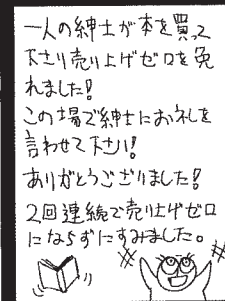 一人の紳士が本を買って
下さり売り上げゼロを免
れました!
この場で紳士にお礼を
言わせて下さい!
ありがとうございました!
2回連続で売り上げゼロ
にならずにすみました。